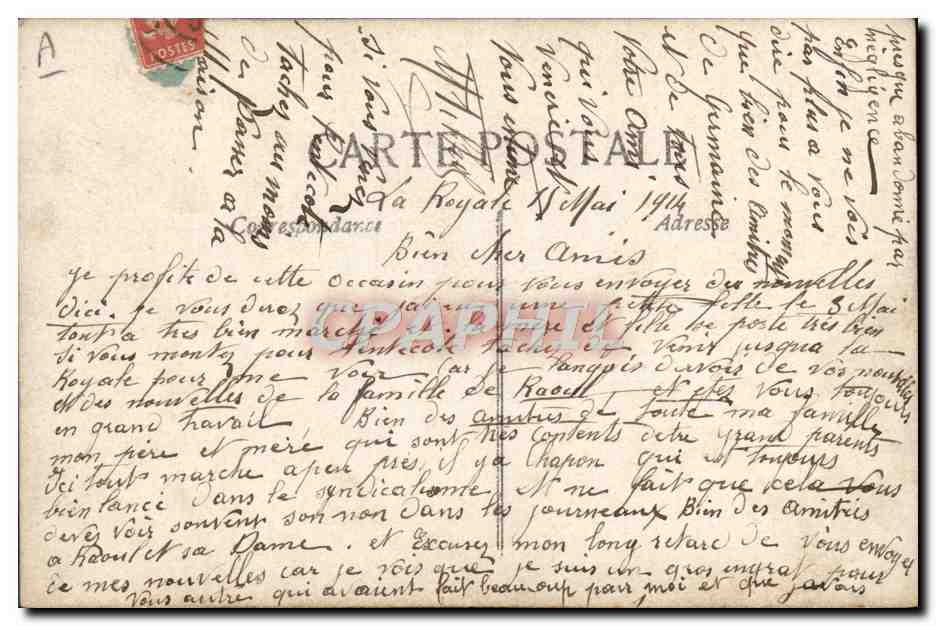 A
POSTES
CARTE POSTALE
La Royale Mai 1914
Correspondance
Adresse
Bien cher Amis
Je profite de cette occasion pour vous envoyer des nouvelles
dici. je vous dirai que jai eu une petite fille le 3 Mai
tout a tres bien marché et la mère et fille se porte très bien
Si vous montez pour Pentecote tachez de venir jusqua la
Royale pour me voir car je languis davoir de vos nouvelles
et des nouvelles de la famille de Raoul et etes vous toujours
en grand travail Bien des amities de toute ma famille
mon père et méré qui sont tres contents detre grand parents
Ici tout marche a peu près, il y a Chapon qui est toujours
bien lancé dans le syndicalisme et ne fait que cela Vous
devez voir souvent son non dans les journeaux Bien des amities
a Raoul et sa Dame. et Excusez mon long retard de vous envoyer
de mes nouvelles car je vois que je suis un gros ingrat pour
vous autre qui avaient fait beaucoup pour moi et que javais
presque abandonné par
négligence
Enfin je ne vois
pas plus a vous
dire pour le moment
que bien des amities
de Germaine
et de tous
Votre Ami
qui vous
remercie
Vous
Si vous venez
pour Pentecote
tachez au moins
de passer a la
Maison
CPAPHIL